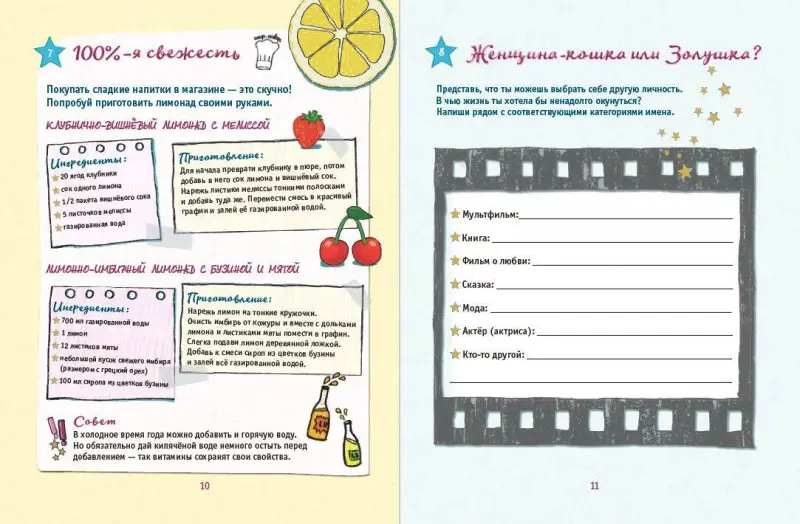 7 100%-я свежесть
шеф-повар
Покупать сладкие напитки в магазине — это скучно!
Попробуй приготовить лимонад своими руками.
КЛУБНИЧНО-ВИШНЁВЫЙ ЛИМОНАД С МЕЛИССОЙ
Ингредиенты:
20 ягод клубники
сок одного лимона
1/2 пакета вишнёвого сока
5 листочков мелиссы
газированная вода
Приготовление:
Для начала преврати клубнику в пюре, потом
добавь в него сок лимона и вишнёвый сок.
Нарежь листики мелиссы тонкими полосками
и добавь туда же. Перемести смесь в красивый
графин и залей её газированной водой.
ЛИМОННО-ИМБИРНЫЙ ЛИМОНАД С БУЗИНОЙ И МЯТОЙ
Ингредиенты:
700 мл газированной воды
1 лимон
12 листиков мяты
небольшой кусок свежего имбиря
(размером с грецкий орех)
100 мл сиропа из цветков бузины
Приготовление:
Нарежь лимон на тонкие кружочки.
Очисть имбирь от кожуры и вместе с дольками
лимона и листиками мяты помести в графин.
Слегка подави лимон деревянной ложкой.
Добавь к смеси сироп из цветков бузины
и залей всё газированной водой.
Совет
В холодное время года можно добавить и горячую воду.
Но обязательно дай кипячёной воде немного остыть перед
добавлением — так витамины сохранят свои свойства.
10
8 Женщина-кошка или Золушка?
Представь, что ты можешь выбрать себе другую личность.
В чью жизнь ты хотела бы ненадолго окунуться?
Напиши рядом с соответствующими категориями имена.
Мультфильм:
Книга:
Фильм о любви:
Сказка:
Мода:
Актёр (актриса):
Кто-то другой:
11